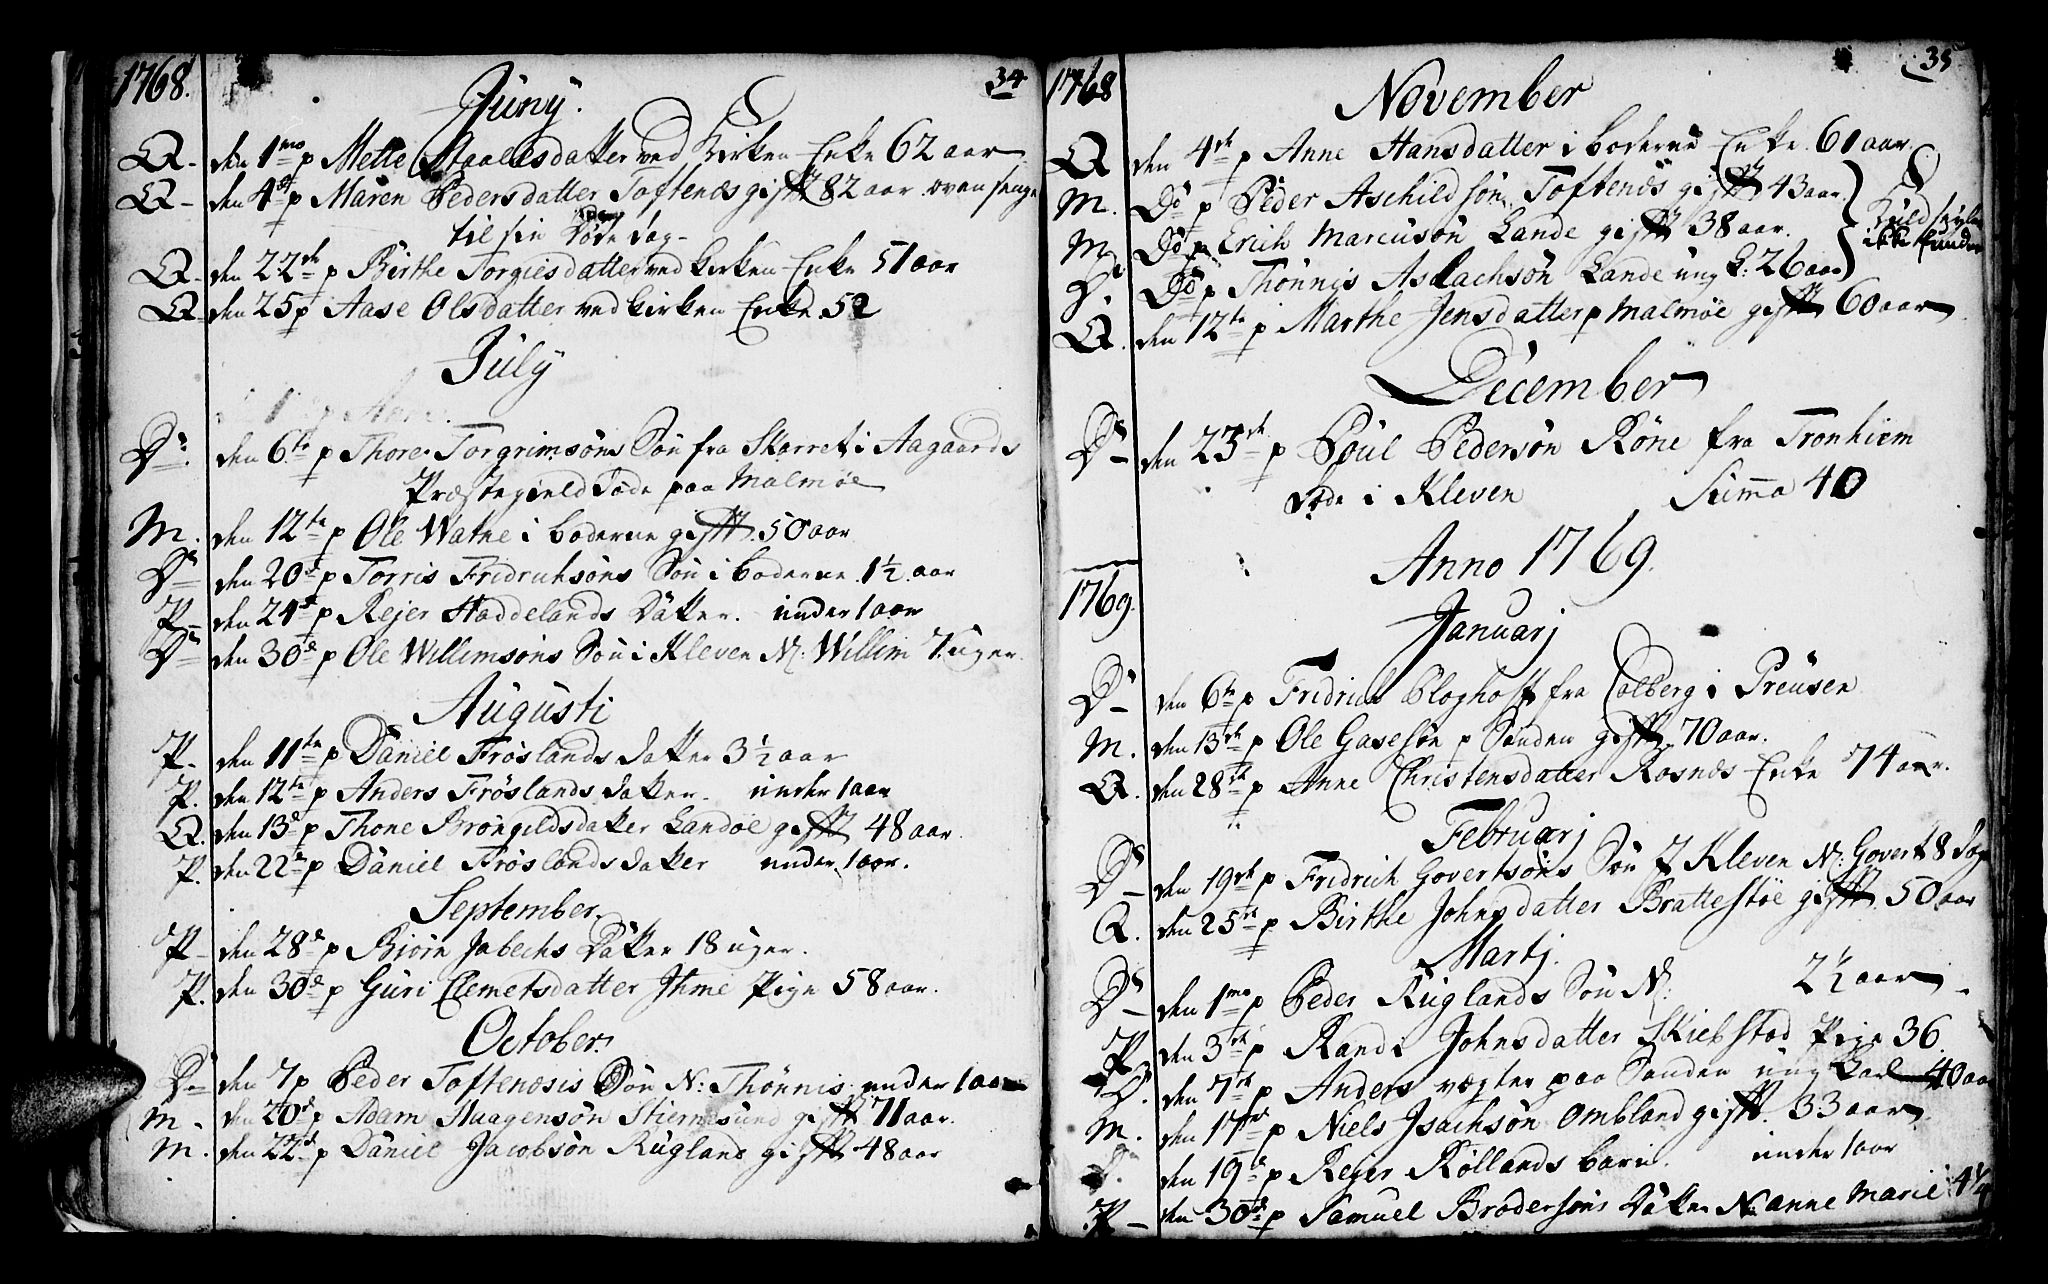 1768. 34
Juny.
Q - den 1mo p Mette Staalesdatter ved Kirken Enke 62 aar
Q - den 4de p Maren Pedersdatter Toftenæs gifft 82 aar ovan senge
til sin Døde dag -
Q - den 22de p Birthe Torgiesdatter ved kirken Enke 51 aar
Q - den 25 p Aase Olsdatter ved kirken Enke 52
July
Ds. den 6te p Thore Torgrimsøns Søn fra Skarret i Aagaards
Præstegield Døde paa Malmøe
M. den 12te p Ole Watne i boderne gifft 50 aar
Ds den 20de p Torris Fridrichsøns Søn i boderne 1½ aar
P - den 24de p Rejer Haddelands Datter. under 1 aar
Ds den 30de p Ole Willimsøns Søn i Kleven N: Willim 7. uger.
Augusti
P - den 11te p Daniel Frøslands datter 3½ aar
P. den 12te p Anders Frøslands datter. under 1 aar
Q. den 13de p Thone Brøngeldsdatter Landøe gifft 48 aar.
P. den 22de p Daniel Frøslands datter under 1 aar.
September.
P - den 28de p Biørn Jabechs Datter 18 uger.
P. den 30de p Guri Clemetsdatter Ihme Pige 58 aar.
October.
Ds den 7 p Peder Toftenæsis Søn N: Thønnis under 1 aar
M. den 20de p Adam Aaagensøn Stiernesund gifft 71 aar.
M. den 22de p Daniel Jacobsøn Rugland gifft 48 aar
1768 35
November
Q den 4de p Anne Hansdatter i boderne Enke. 61 aar.
M. Do p Peder Aschildsøn Toftenæs gifft 43 aar
M. Do p Erich Marcusøn Lande gifft 38 aar.
D. Do p Thønnis Aslachsøn Lande ung k: 26 aar
ikke funden
Q. den 12te p Marthe Jensdatter p Malmøe gifft 60 aar
December
Ds den 23de p Poul Pedersøn Røne fra Tronhiem
Døde i Kleven Summa 40
Anno 1769.
1769.
Januarj
Ds den 6te p Fridrich Bloghoff fra Colberg i Preusen
M. den 13de p Ole Gasesøn p Sanden gifft 70 aar.
Q. den 28de p Anne Christensdatter Rosnæs Enke 74 aar.
Februarj
Ds den 19de p Fridrich Govertsøns Søn I Kleven N: Govert 8 Dag
Q. den 25de p Birthe Johnsdatter Brattestøe gifft 50 aar
Martj.
Ds den 1mo p Peder Ruglands Søn N: 2½ aar
P. den 3de p Randi Johnsdatter Skiebstad Pige 36.
D. den 7de p Anders vægter paa Sanden ung Karl 40 aar
M. den 17de p Niels Isachsøn Ombland gifft. 33 aar.
den 19de p Rejer Røllands barn. under 1 aar
P - den 30de p Samuel Brodersøns Datter N: anne Marie 4¼